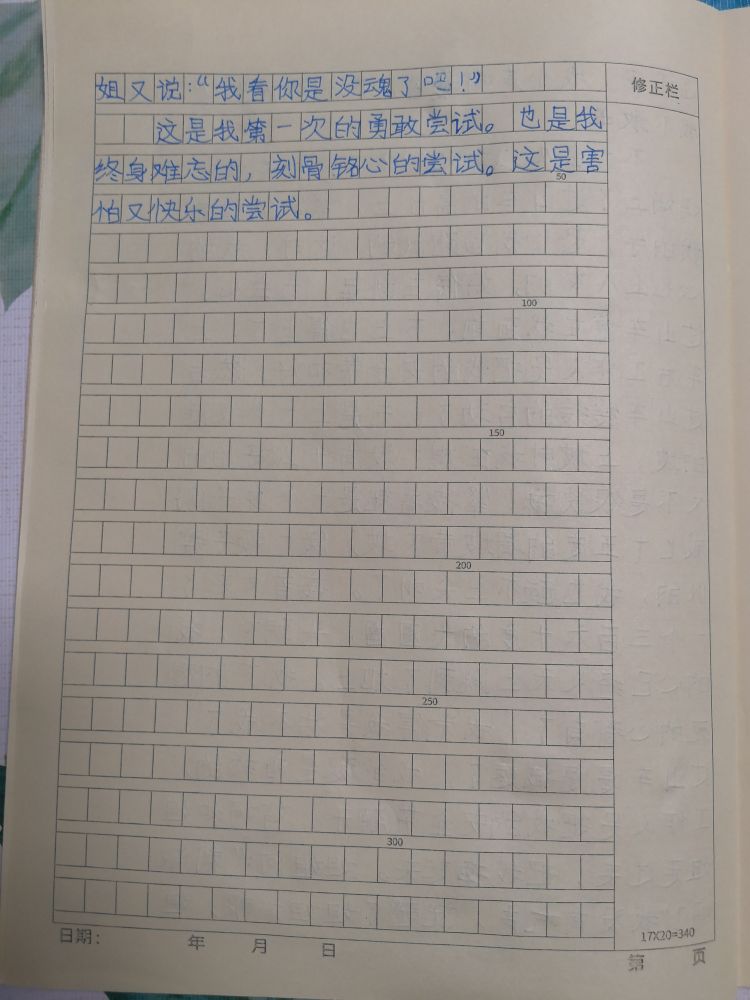 姐又说：“我看你是没魂了吧！”
修正栏
这是我第一次的勇敢尝试。也是我
终身难忘的，刻骨铭心的尝试。这是害
50
怕又快乐的尝试。
100
150
200
250
300
17X20=340
日期： 年 月 日
第 页